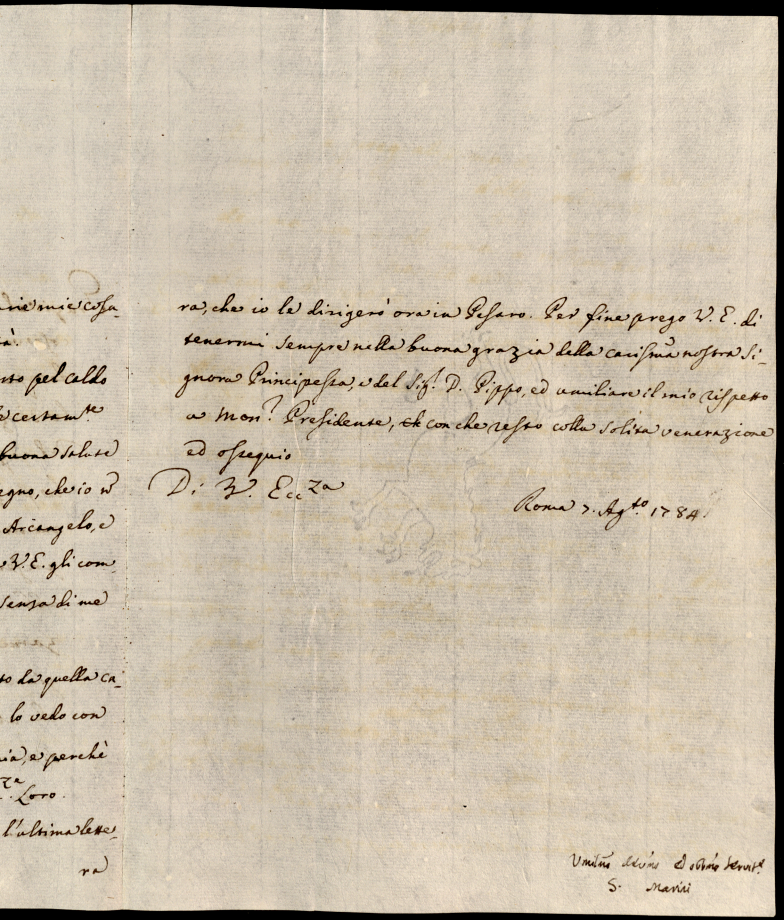 arie mie cosa-
tà.
nto pel caldo
è certam.te
buona salute
egno, che io n
Arcangelo, e
V. E. gli com-
senza di me
to da quella ca-
lo vedo con
nia, e perchè
za Loro.
l'ultima lette-
ra
ra, che io le dirigerò ora in Pesaro. Per fine prego V. E. di
tenermi sempre nella buona grazia della carissma nostra Si-
gnora Principessa, e del Sig.r D. Pippo, ed umiliare il mio rispetto
a Mon.r Presidente, con che resto colla solita venerazione
ed ossequio
Di V. Ecc.za
Roma 7. Ag.to 1784.
Umilmo devmo ed obbmo servit.e
S. Marini